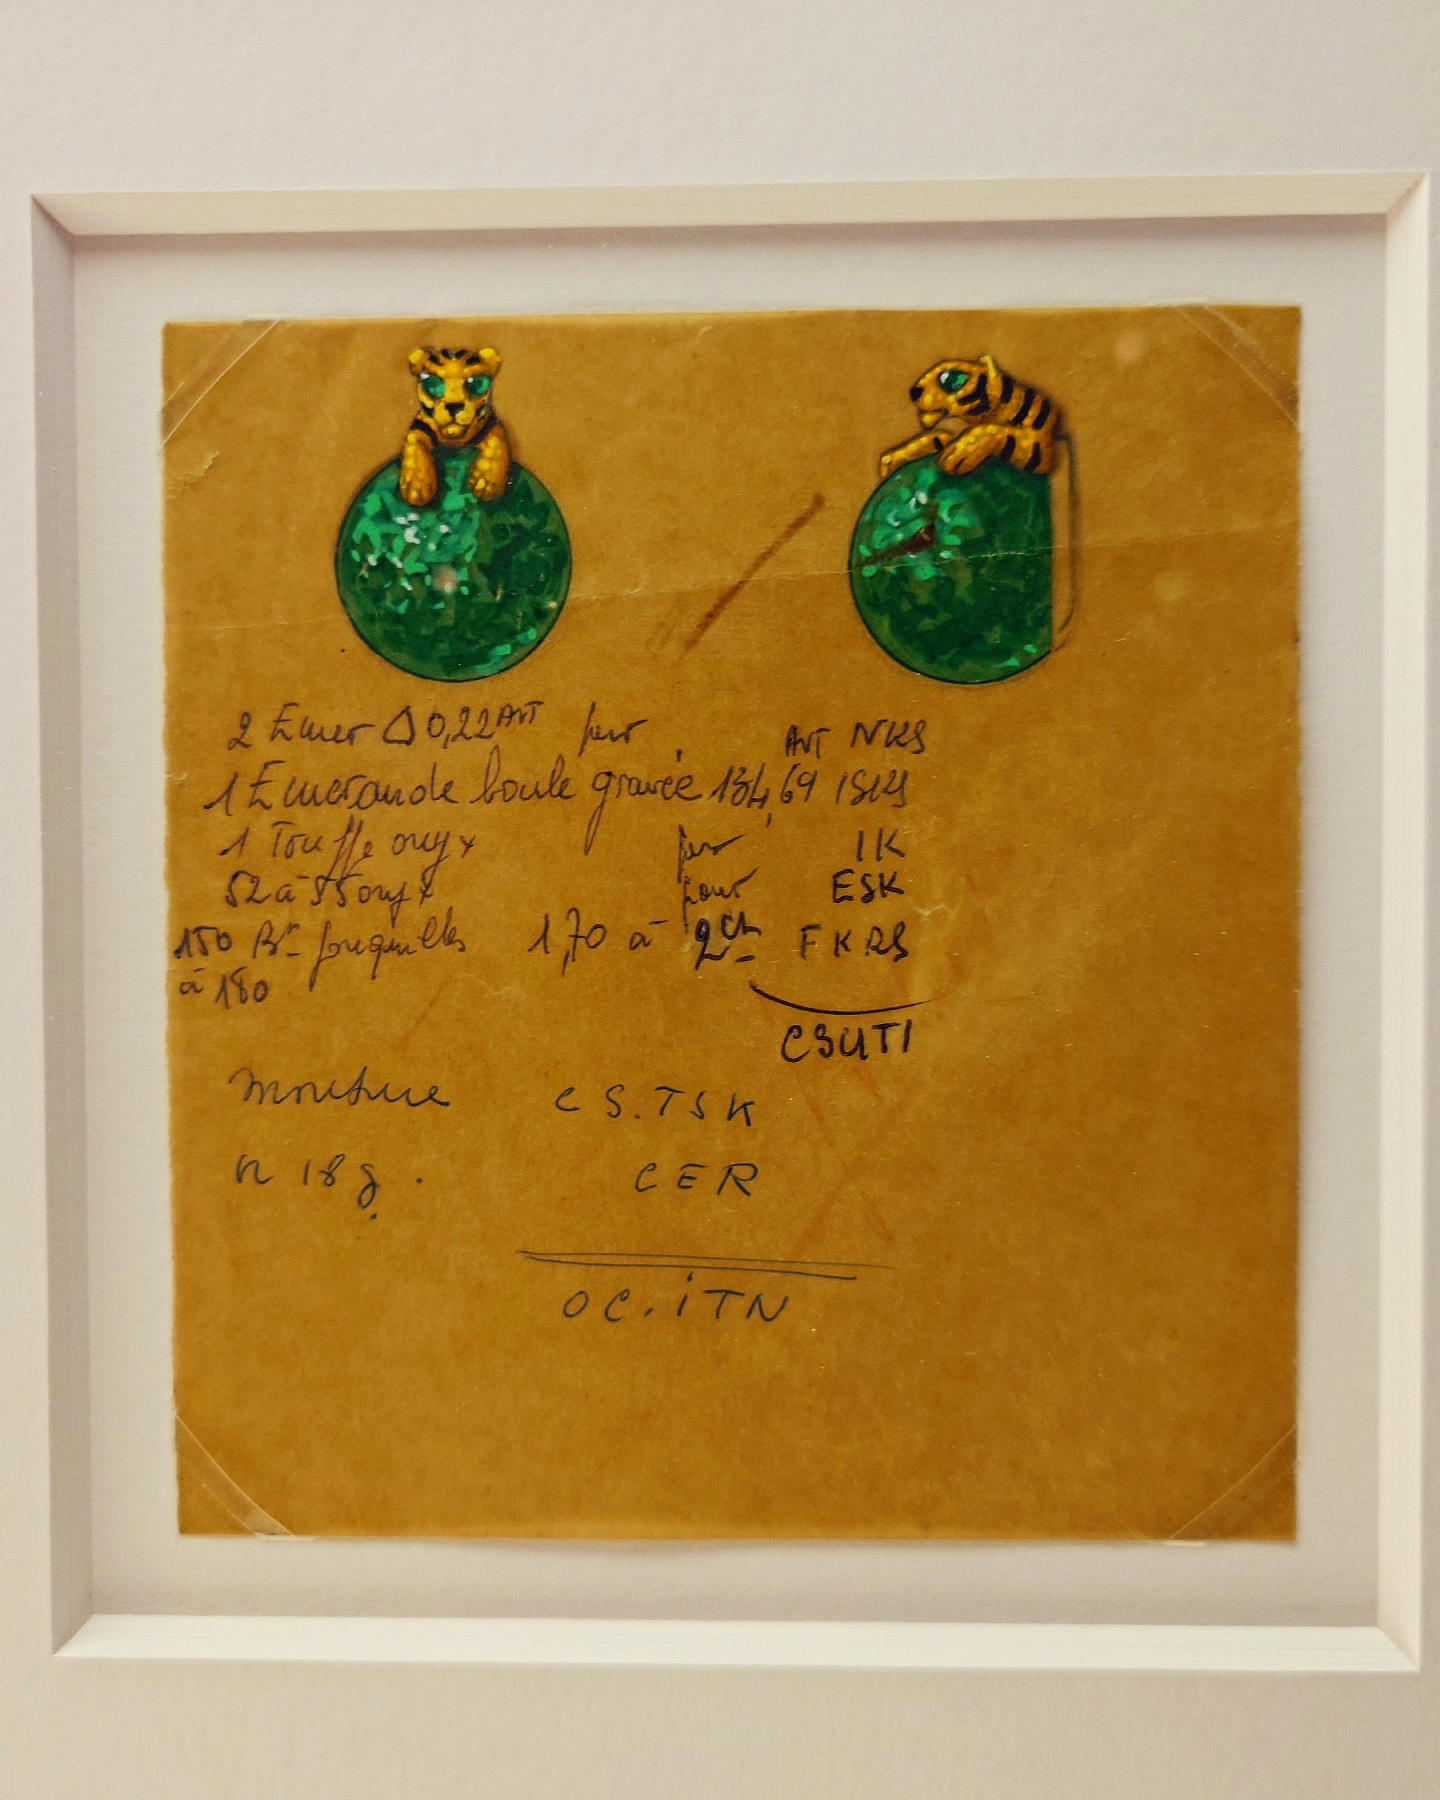 2 Emer 0,22 Art pour Art NKS
1 Emeraude boule gravée 134,69 ISKS
1 Touffe onyx pour IK
52 à 55 onyx pour ESK
150 Bts jonquilles 1,70 à 2 cts FKRS
à 180
CSUTI
Monture CS.TSK
18 g. CER
OC.iTN